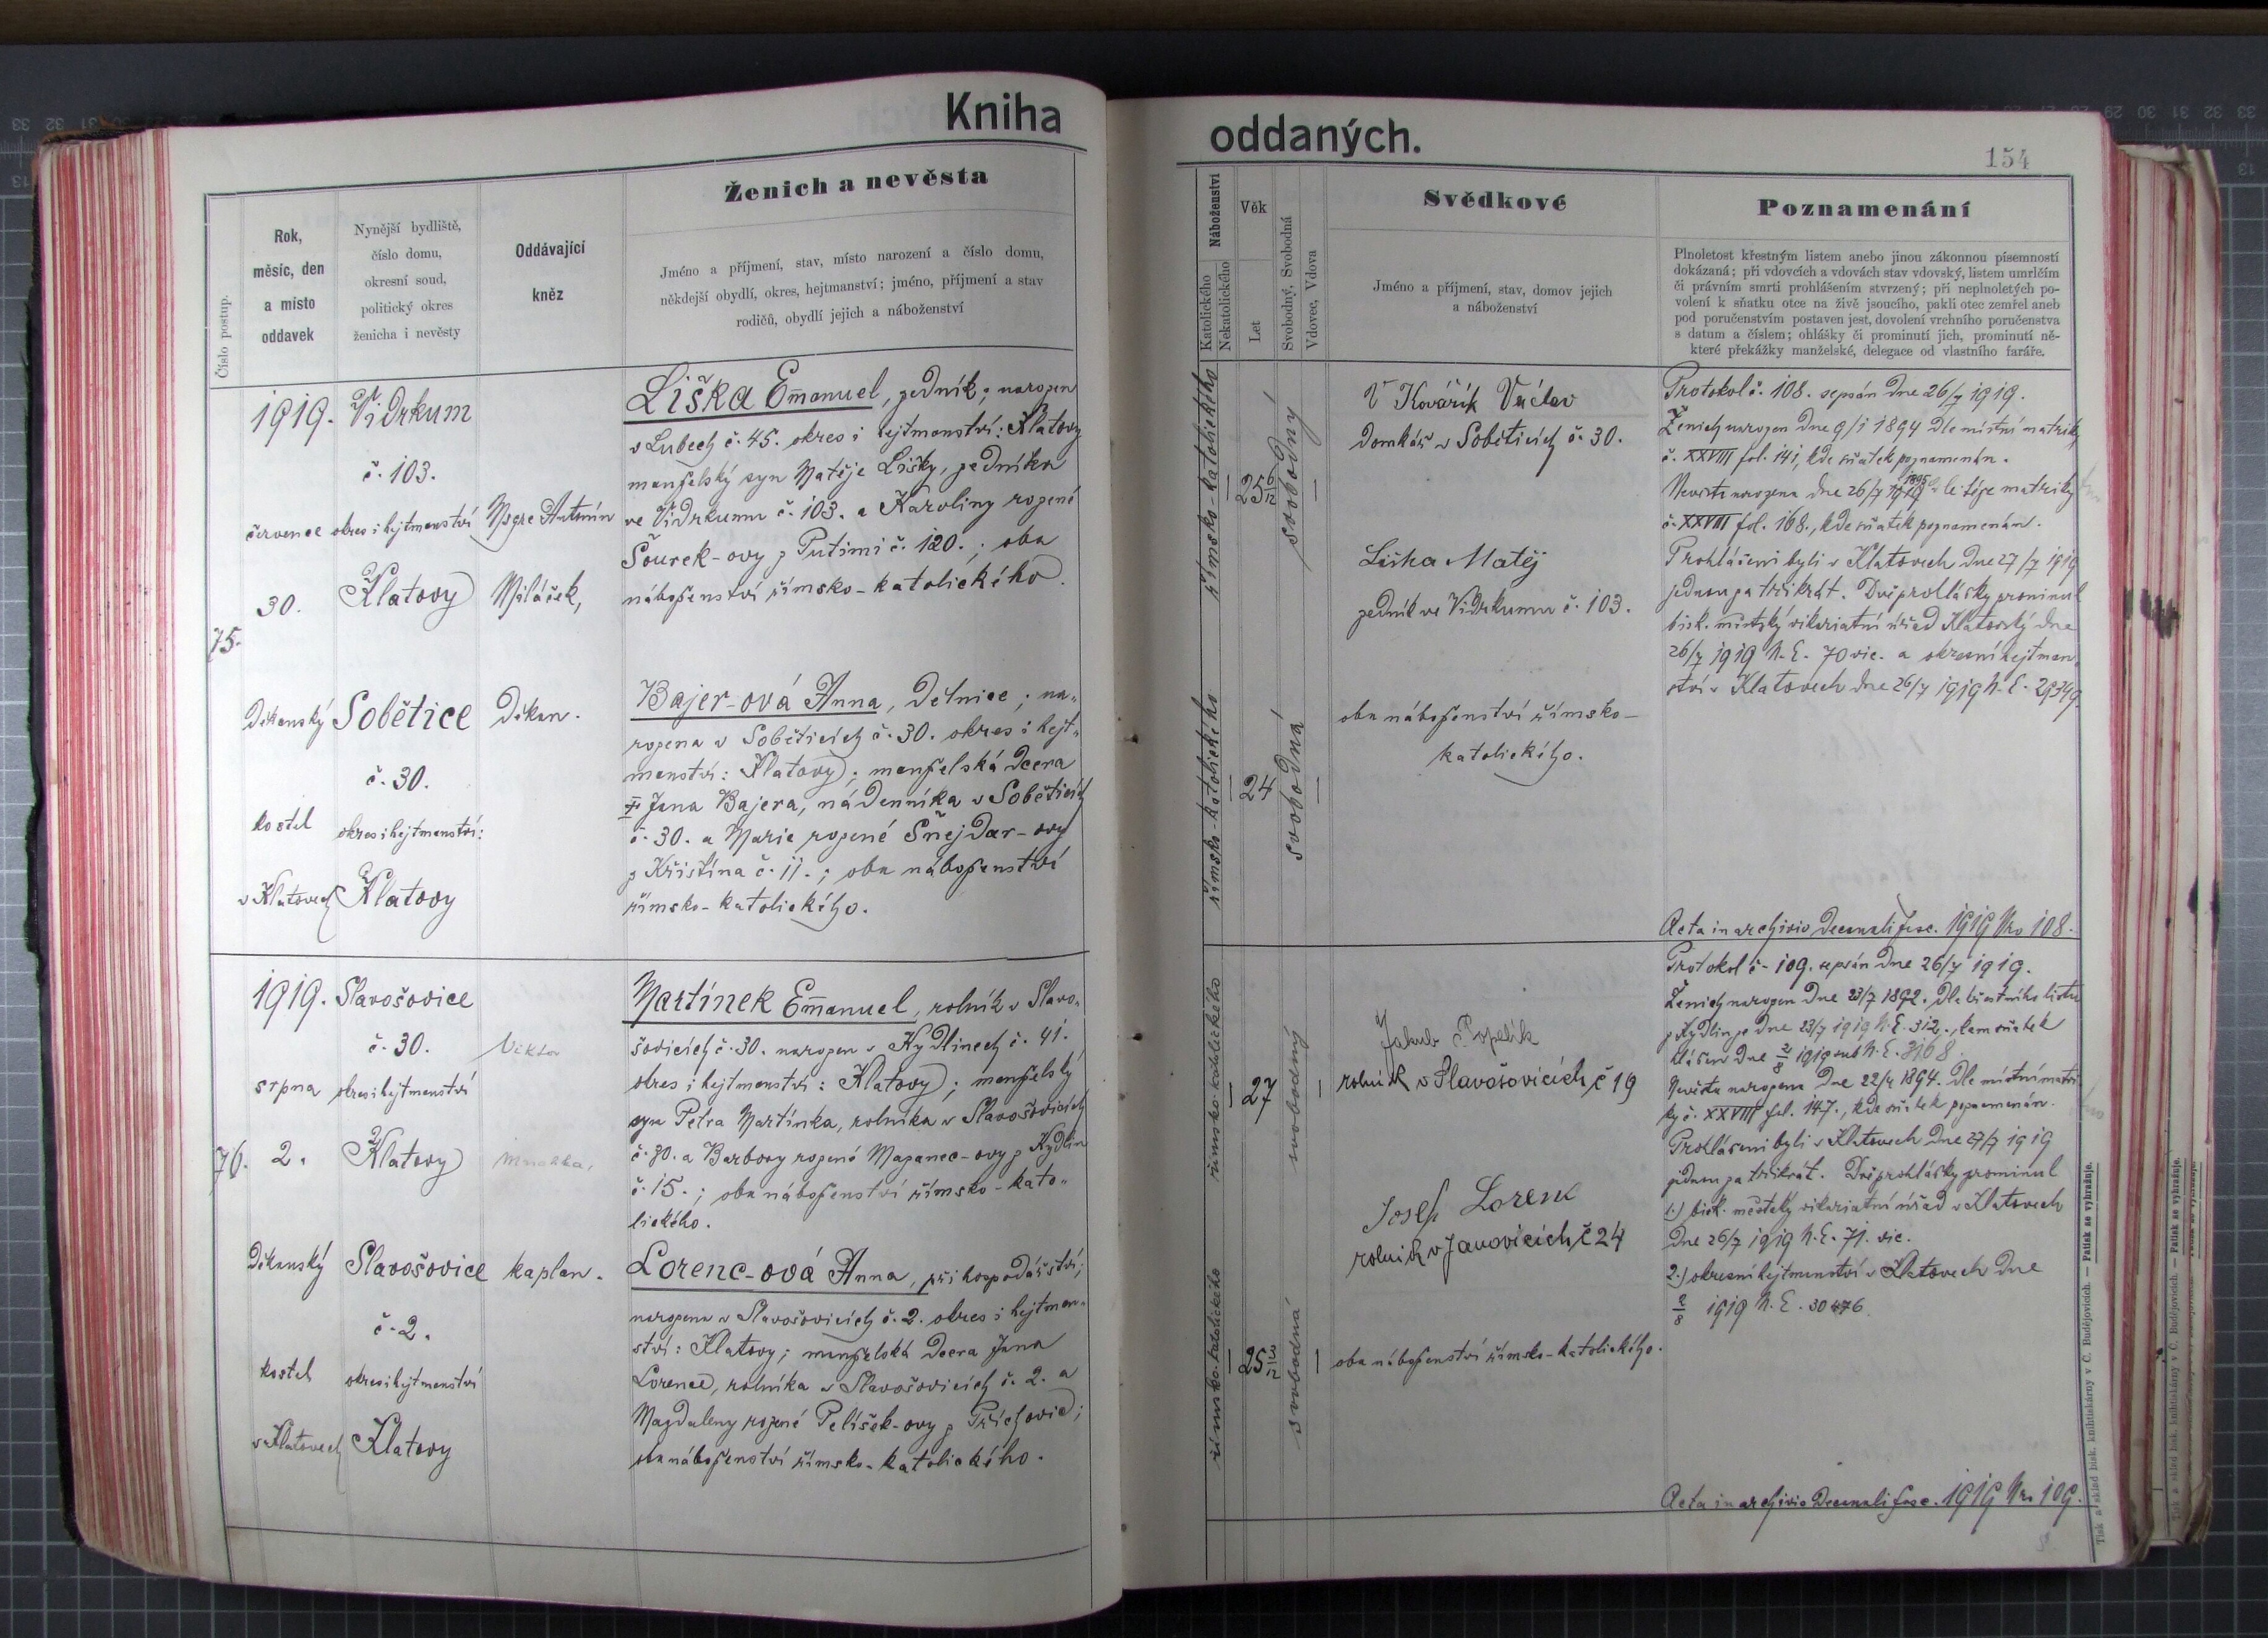 Kniha
oddaných.
154
Číslo postup.
Rok,
měsíc, den
a místo
oddavek
Nynější bydliště,
číslo domu,
okresní soud,
politický okres
ženicha i nevěsty
Oddávající
kněz
Ženich a nevěsta
Jméno a příjmení, stav, místo narození a číslo domu,
někdejší obydlí, okres, hejtmanství; jméno, příjmení a stav
rodičů, obydlí jejich a náboženství
Náboženství
Katolického
Nekatolického
Věk
Let
Svobodný, Svobodná
Vdovec, Vdova
Svědkové
Jméno a příjmení, stav, domov jejich
a náboženství
Poznamenání
Plnoletost křestným listem anebo jinou zákonnou písemností
dokázaná; při vdovcích a vdovách stav vdovský, listem umrlčím
či právním smrti prohlášením stvrzený; při neplnoletých po-
volení k sňatku otce na živě jsoucího, pakli otec zemřel aneb
pod poručenstvím postaven jest, dovolení vrchního poručenstva
s datum a číslem; ohlášky či prominutí jich, prominutí ně-
které překážky manželské, delegace od vlastního faráře.
75.
1919.
července
30.
Děkanský
kostel
v Klatovech
Vidrkum
č. 103.
okres i hejtmanství
Klatovy
Sobětice
č. 30.
okres i hejtmanství:
Klatovy
Msgre Antonín
Miláček,
Děkan.
Liška Emanuel, zedník; narozen
v Lubech č. 45. okres i hejtmanství: Klatovy
manželský syn Matěje Lišky, zedníka
ve Vidrkumu č. 103. a Karoliny rozené
Šourek-ovy z Putimi č. 120.; oba
náboženství římsko-katolického.
Bajer-ová Anna, dělnice; na-
rozena v Soběticích č. 30. okres i hejt-
manství: Klatovy; manželská dcera
Jana Bajera, nádenníka v Soběticích
č. 30. a Marie rozené Šnejdar-ovy
z Křištína č. 11.; oba náboženství
římsko-katolického.
římsko-katolického
25 6/12
svobodný
římsko-katolického
24
svobodná
Kovářík Václav
domkář v Soběticích č. 30.
Liška Matěj
zedník ve Vidrkumu č. 103.
oba náboženství římsko-
katolického.
Protokol č. 108. sepsán dne 26/7 1919.
Ženich narozen dne 9/1 1894 dle místní matriky
č. XXVIII fol. 141, kde sňatek poznamenán.
Nevěsta narozena dne 26/7 1919 1895 dle téže matriky
č. XXVIII fol. 168., kde sňatek poznamenán.
Prohlášeni byli v Klatovech dne 27/7 1919
jednou za třikrát. Dvě prohlášky prominul
bisk. městský vikariatní úřad Klatovský dne
26/7 1919 N. E. 70 vic. a okresní hejtman-
ství v Klatovech dne 26/7 1919 N. E. 29349.
Acta in archivio Decanali fasc. 1919 Nro 108.
76.
1919.
srpna
2.
Děkanský
kostel
v Klatovech
Slavošovice
č. 30.
okres i hejtmanství
Klatovy
Slavošovice
č. 2.
okres i hejtmanství
Klatovy
Viktor
kaplan.
Martínek Emanuel, rolník v Slavo-
šovicích č. 30. narozen v Kydlinech č. 41.
okres i hejtmanství: Klatovy; manželský
syn Petra Martínka, rolníka v Slavošovicích
č. 30. a Barbory rozené Mazanec-ovy z Kydlin
č. 15.; oba náboženství římsko-kato-
lického.
Lorenc-ová Anna, při hospodářství;
narozena v Slavošovicích č. 2. okres i hejtman-
ství: Klatovy; manželská dcera Jana
Lorence, rolníka v Slavošovicích č. 2. a
Magdaleny rozené Pelíšek-ovy z Příchovic;
oba náboženství římsko-katolického.
římsko-katolického
27
svobodný
římsko-katolického
25 3/12
svobodná
Jakub Popelík
rolník v Slavošovicích č 19
Josef Lorenc
rolník v Janovicích č 24
oba náboženství římsko-katolického.
Protokol č. 109. sepsán dne 26/7 1919.
Ženich narozen dne 23/7 1892. dle křestního listu
z Kydlin ze dne 23/7 1919 N. E. 312., kam sňatek
hlášen dne 2/8 1919 sub N. E. 3168.
Nevěsta narozena dne 22/4 1894. dle místní matri-
ky č. XXVIII fol. 147., kde sňatek poznamenán.
Prohlášeni byli v Klatovech dne 27/7 1919
jednou za třikrát. Dvě prohlášky prominul
1.) bisk. městský vikariatní úřad v Klatovech
dne 26/7 1919 N. E. 71. vic.
2.) okresní hejtmanství v Klatovech dne
2/8 1919 N. E. 30476.
Acta in archivio Decanali fasc. 1919 Nro 109.
Tisk a sklad bisk. knihtiskárny v Č. Budějovicích. — Patisk se vyhražuje.